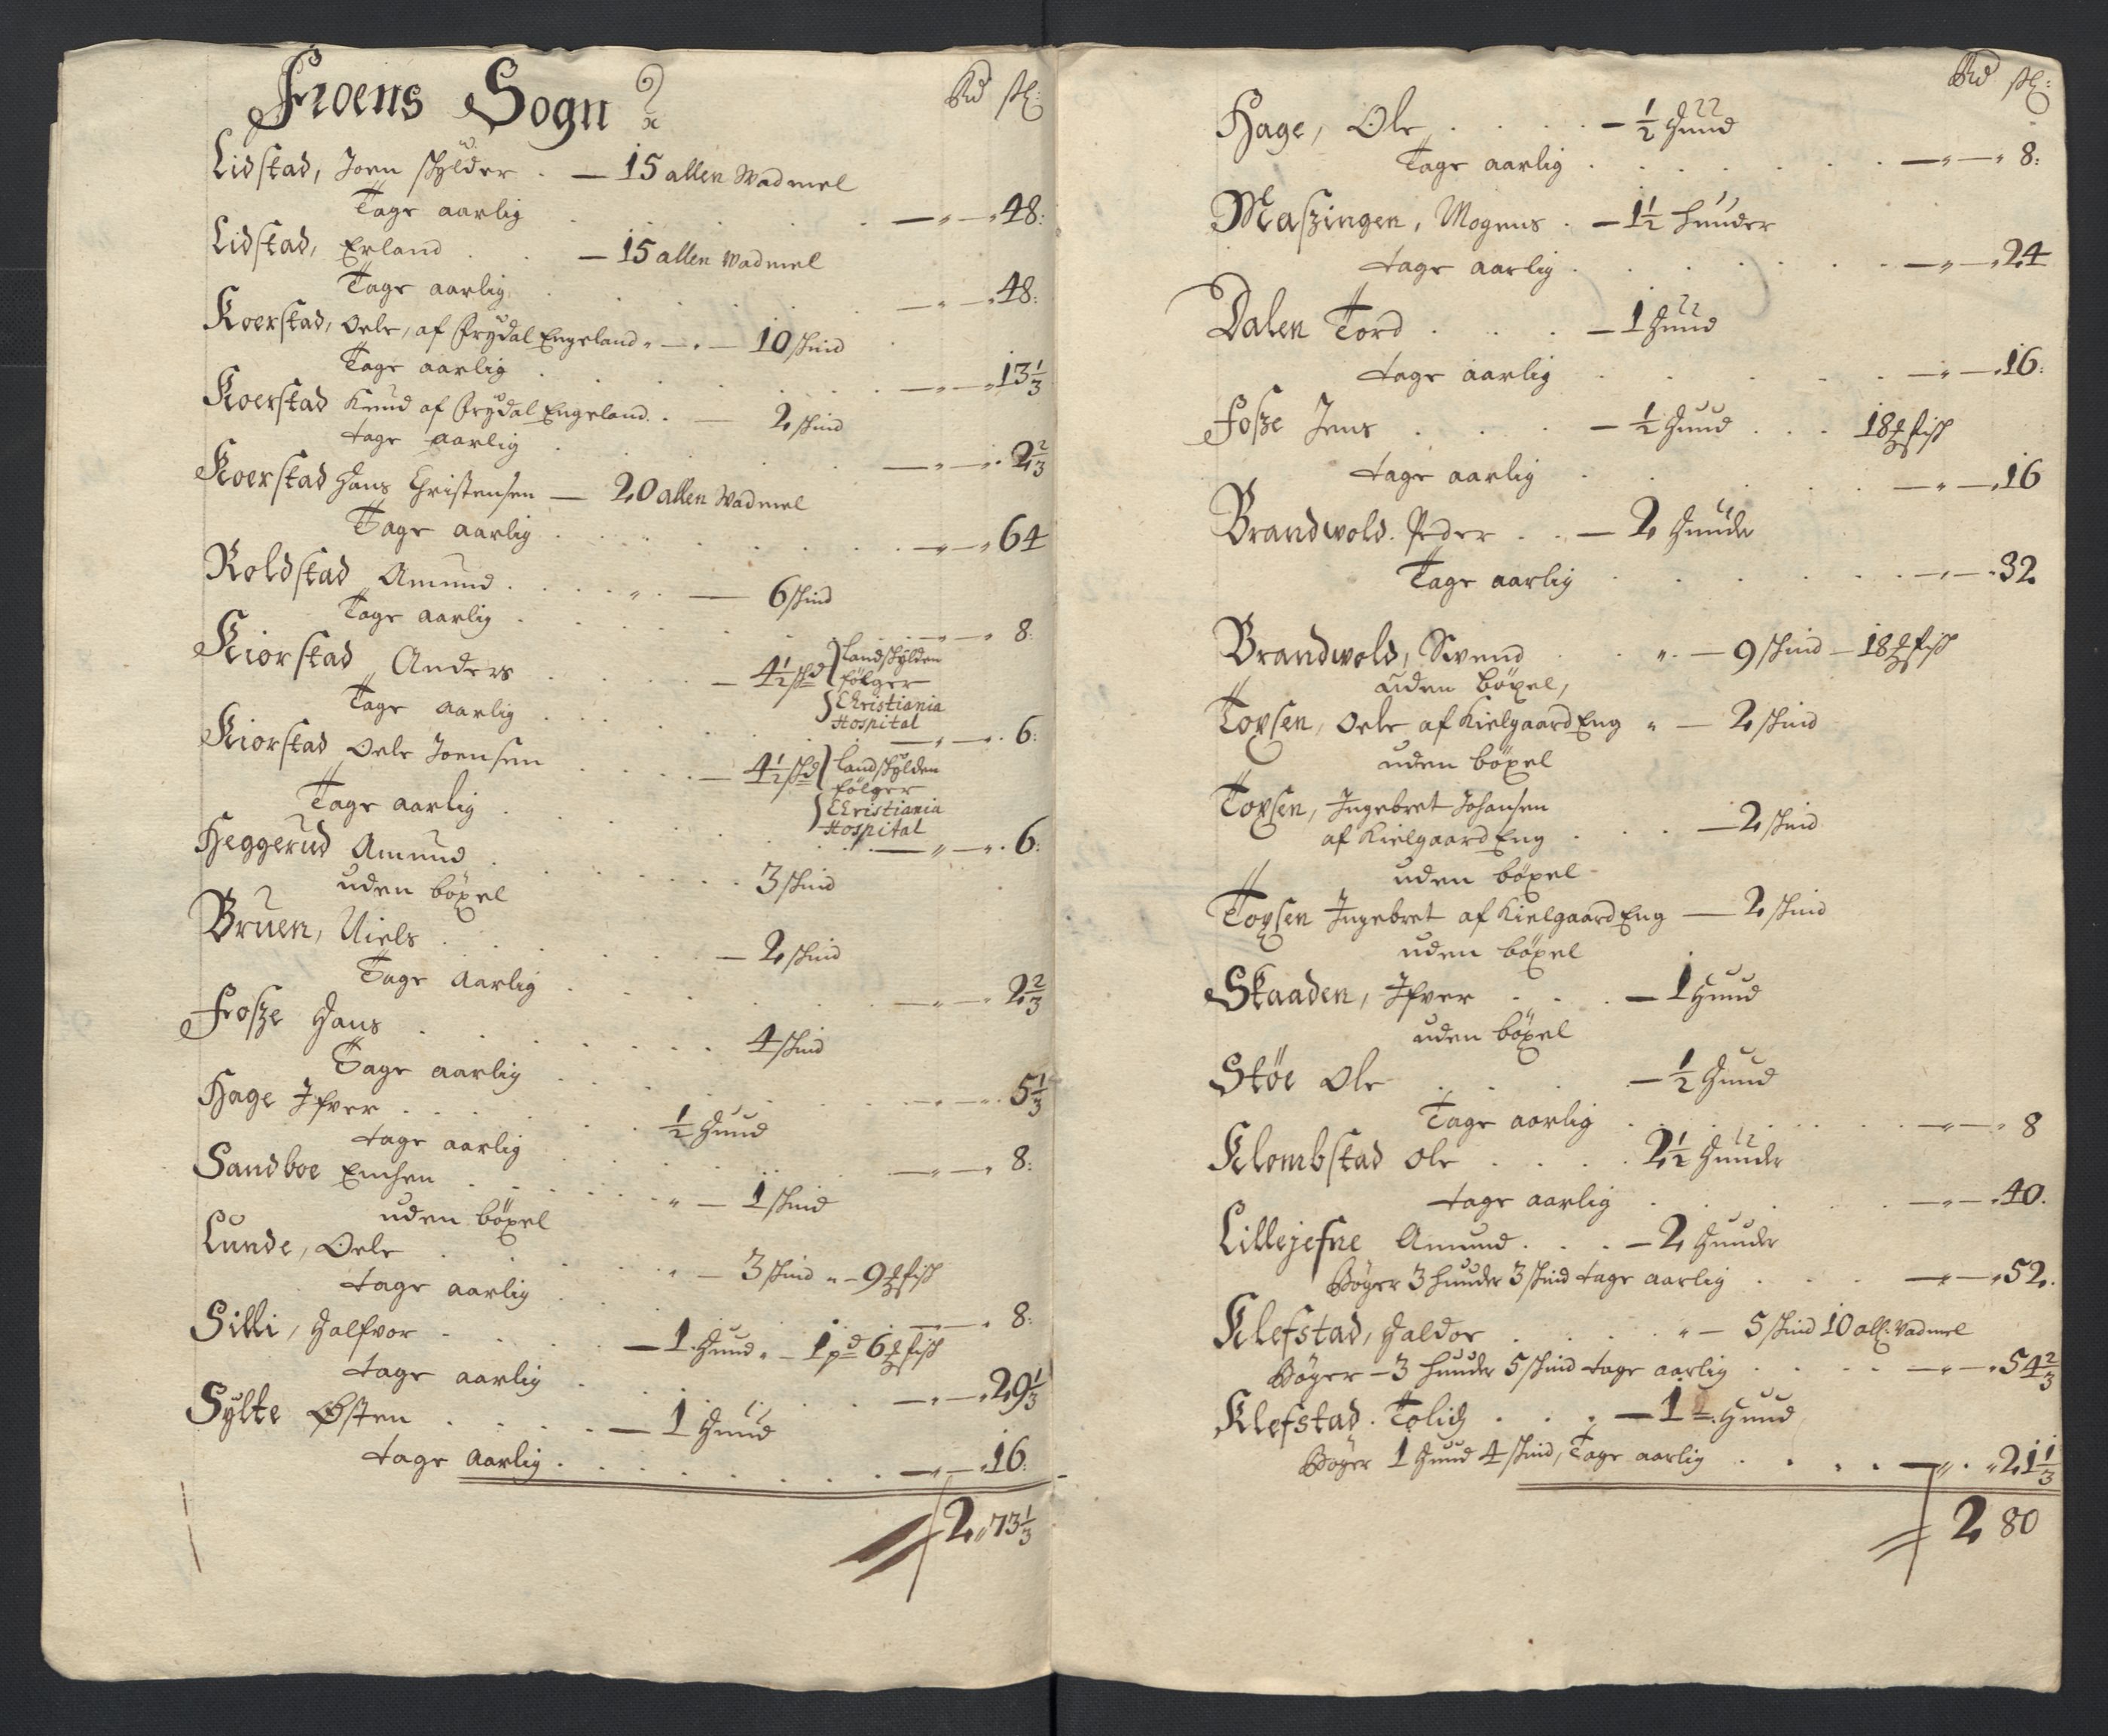 Froens Sogn
Rd sk:
Lidstad, Joen skylder . — 15 allen Wadmel
Tage aarlig . — " — " 48:
Lidstad, Erland . . — 15 allen wadmel
Tage aarlig . — " — " 48:
Koerstad, Oele, af Prydal Engeland " — " — 10 skind
Tage aarlig . — " — " 13 1/3
Koerstad Knud af Prydal Engeland . . — 2 skind
tage aarlig . — " — " 2 2/3
Koerstad Hans Christensen — 20 allen Wadmel
Tage aarlig . — " — " 64
Roldstad Amund . . . " . — 6 skind
Tage aarlig . — " — " 8:
Kiorstad Anders . . . — 4 1/2 skd } Landskylden
følger
Christiania
Hospital
Tage aarlig . — " — " 6:
Kiorstad Oele Joensen . . . — 4 1/2 skd } Landskylden
følger
Christiania
Hospital
Tage aarlig . — " — " 6:
Heggerud Amund . . . 3 skind
uden böxel
Bruen, Niels . . . — 2 skind
Tage aarlig . — " — " 2 2/3
Fosze Hans . . . 4 skind
Tage aarlig . — " — " 5 1/3
Hage Ifver . . . 1/2 Hund
tage aarlig . — " — " 8:
Sandboe Emhen . . . " — 1 skind
uden böxel
Lunde, Oele . . . " — 3 skind " — 9 ℔ fisk
tage aarlig . — " — " 8:
Silli, Halfvor . . — 1 Hund " — 1 pd 6 ℔ fisk
tage aarlig . — " — " 29 1/3
Sylte Østen . . . — 1 Hund
tage aarlig . — " — " 16:
2 " 73 1/3
Rd sk:
Hage, Ole . . . . — 1/2 Hund
Tage aarlig . — " — " 8:
Maszingen, Mogens . — 1 1/2 hunder
tage aarlig . — " — " 24
Dalen Tord . . . — 1 Hund
tage aarlig . — " — " 16:
Fosze Jens . . . — 1/2 Hund . . . 18 ℔ fisk
tage aarlig . — " — " 16
Brandwold. Peder . . — 2 Hunder
Tage aarlig . — " — " 32
Brandwold, Swend . . " . — 9 skind — 18 ℔ fisk
uden böxel,
Toysen, Oele af Kielgaard Eng " — 2 skind
uden böxel
Toysen, Ingebret Johansen
af Kielgaard Eng . . . — 2 skind
uden böxel
Toysen Ingebret af Kielgaard Eng — 2 skind
uden böxel
Skaaden, Ifver . . . — 1 Hund
uden böxel
Stöe Ole . . . — 1/2 Hund
Tage aarlig . — " — " 8
Klombstad Ole . . . . 2 1/2 Hunder
tage aarlig . — " — " 40.
Lillejefne Amund . . . — 2 Hunder
Bøger 3 hunder 3 skind tage aarlig . . . — " — " 52.
Klefstad, Haldor . . . . " — 5 skind 10 all: Vadmel
Bøger — 3 hunder 5 skind tage aarlig . . . — " — " 54 2/3
Klefstad. Tolich . . . — 1 Hund
Bøger 1 Hund 4 skind, Tage aarlig . . . . — " . " 21 1/3
2 80